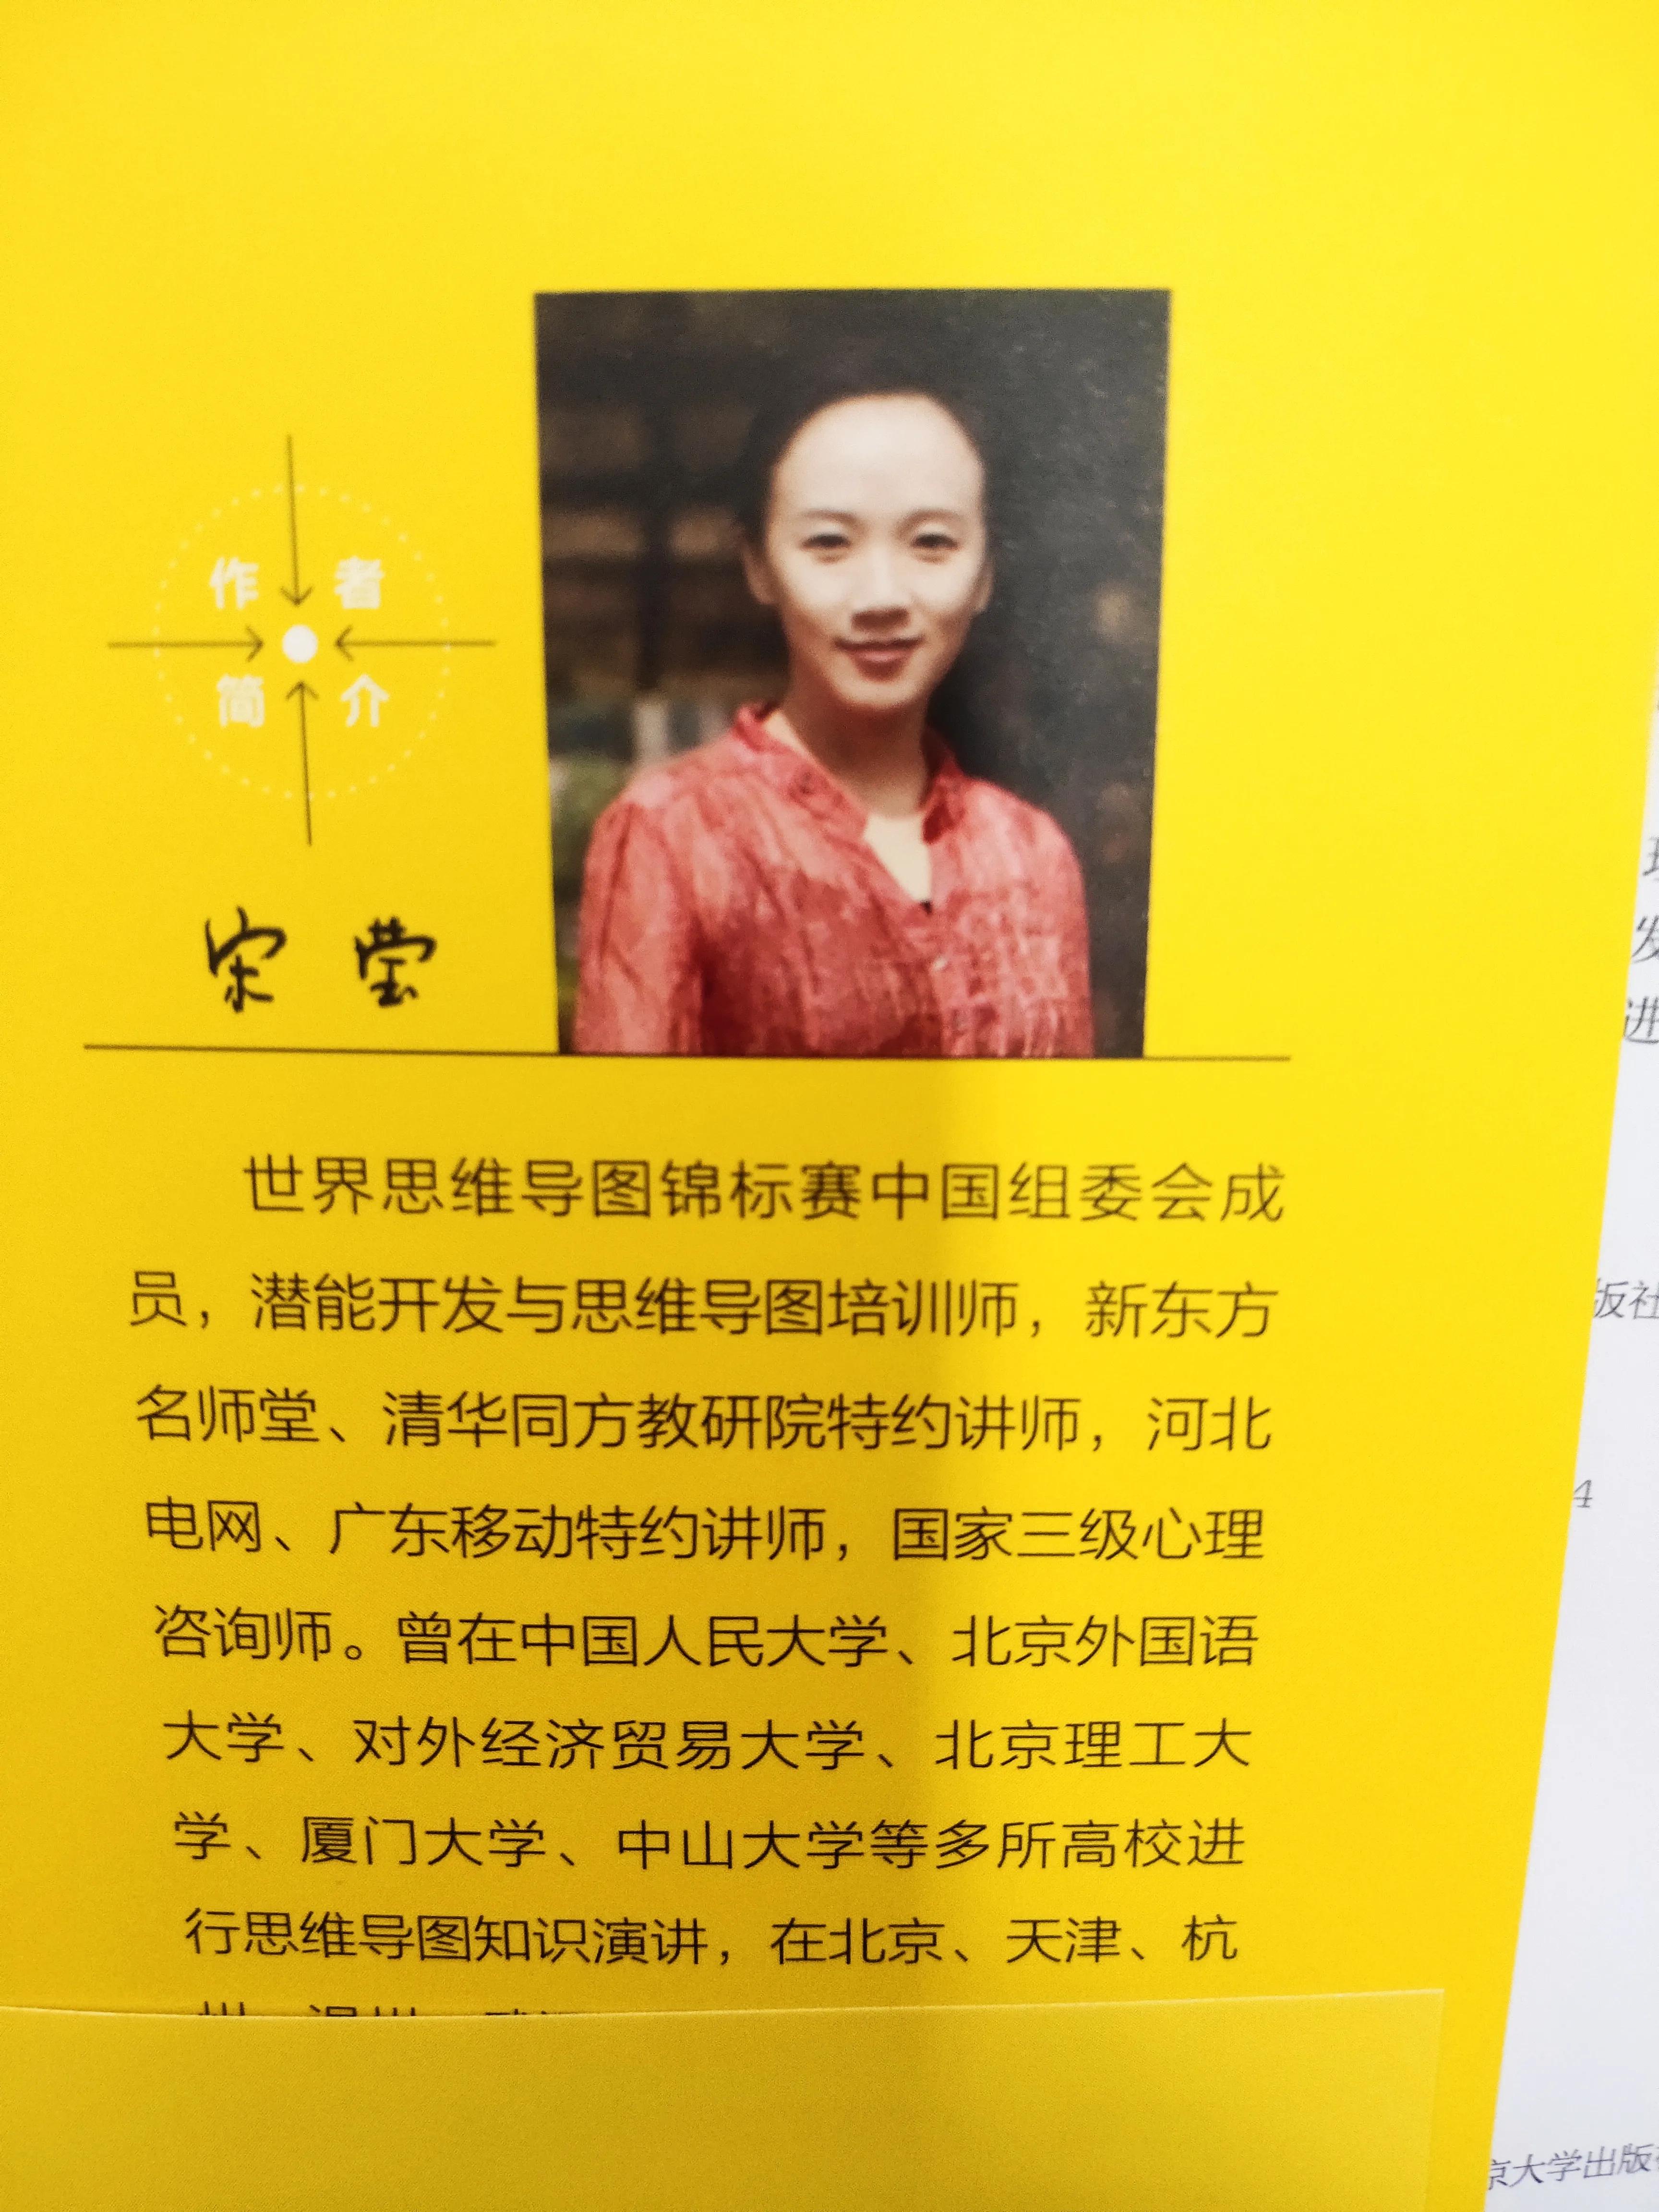 作者
简介
宋莹
世界思维导图锦标赛中国组委会成
员，潜能开发与思维导图培训师，新东方
名师堂、清华同方教研院特约讲师，河北
电网、广东移动特约讲师，国家三级心理
咨询师。曾在中国人民大学、北京外国语
大学、对外经济贸易大学、北京理工大
学、厦门大学、中山大学等多所高校进
行思维导图知识演讲，在北京、天津、杭
发
进
版社
4
京大学出版